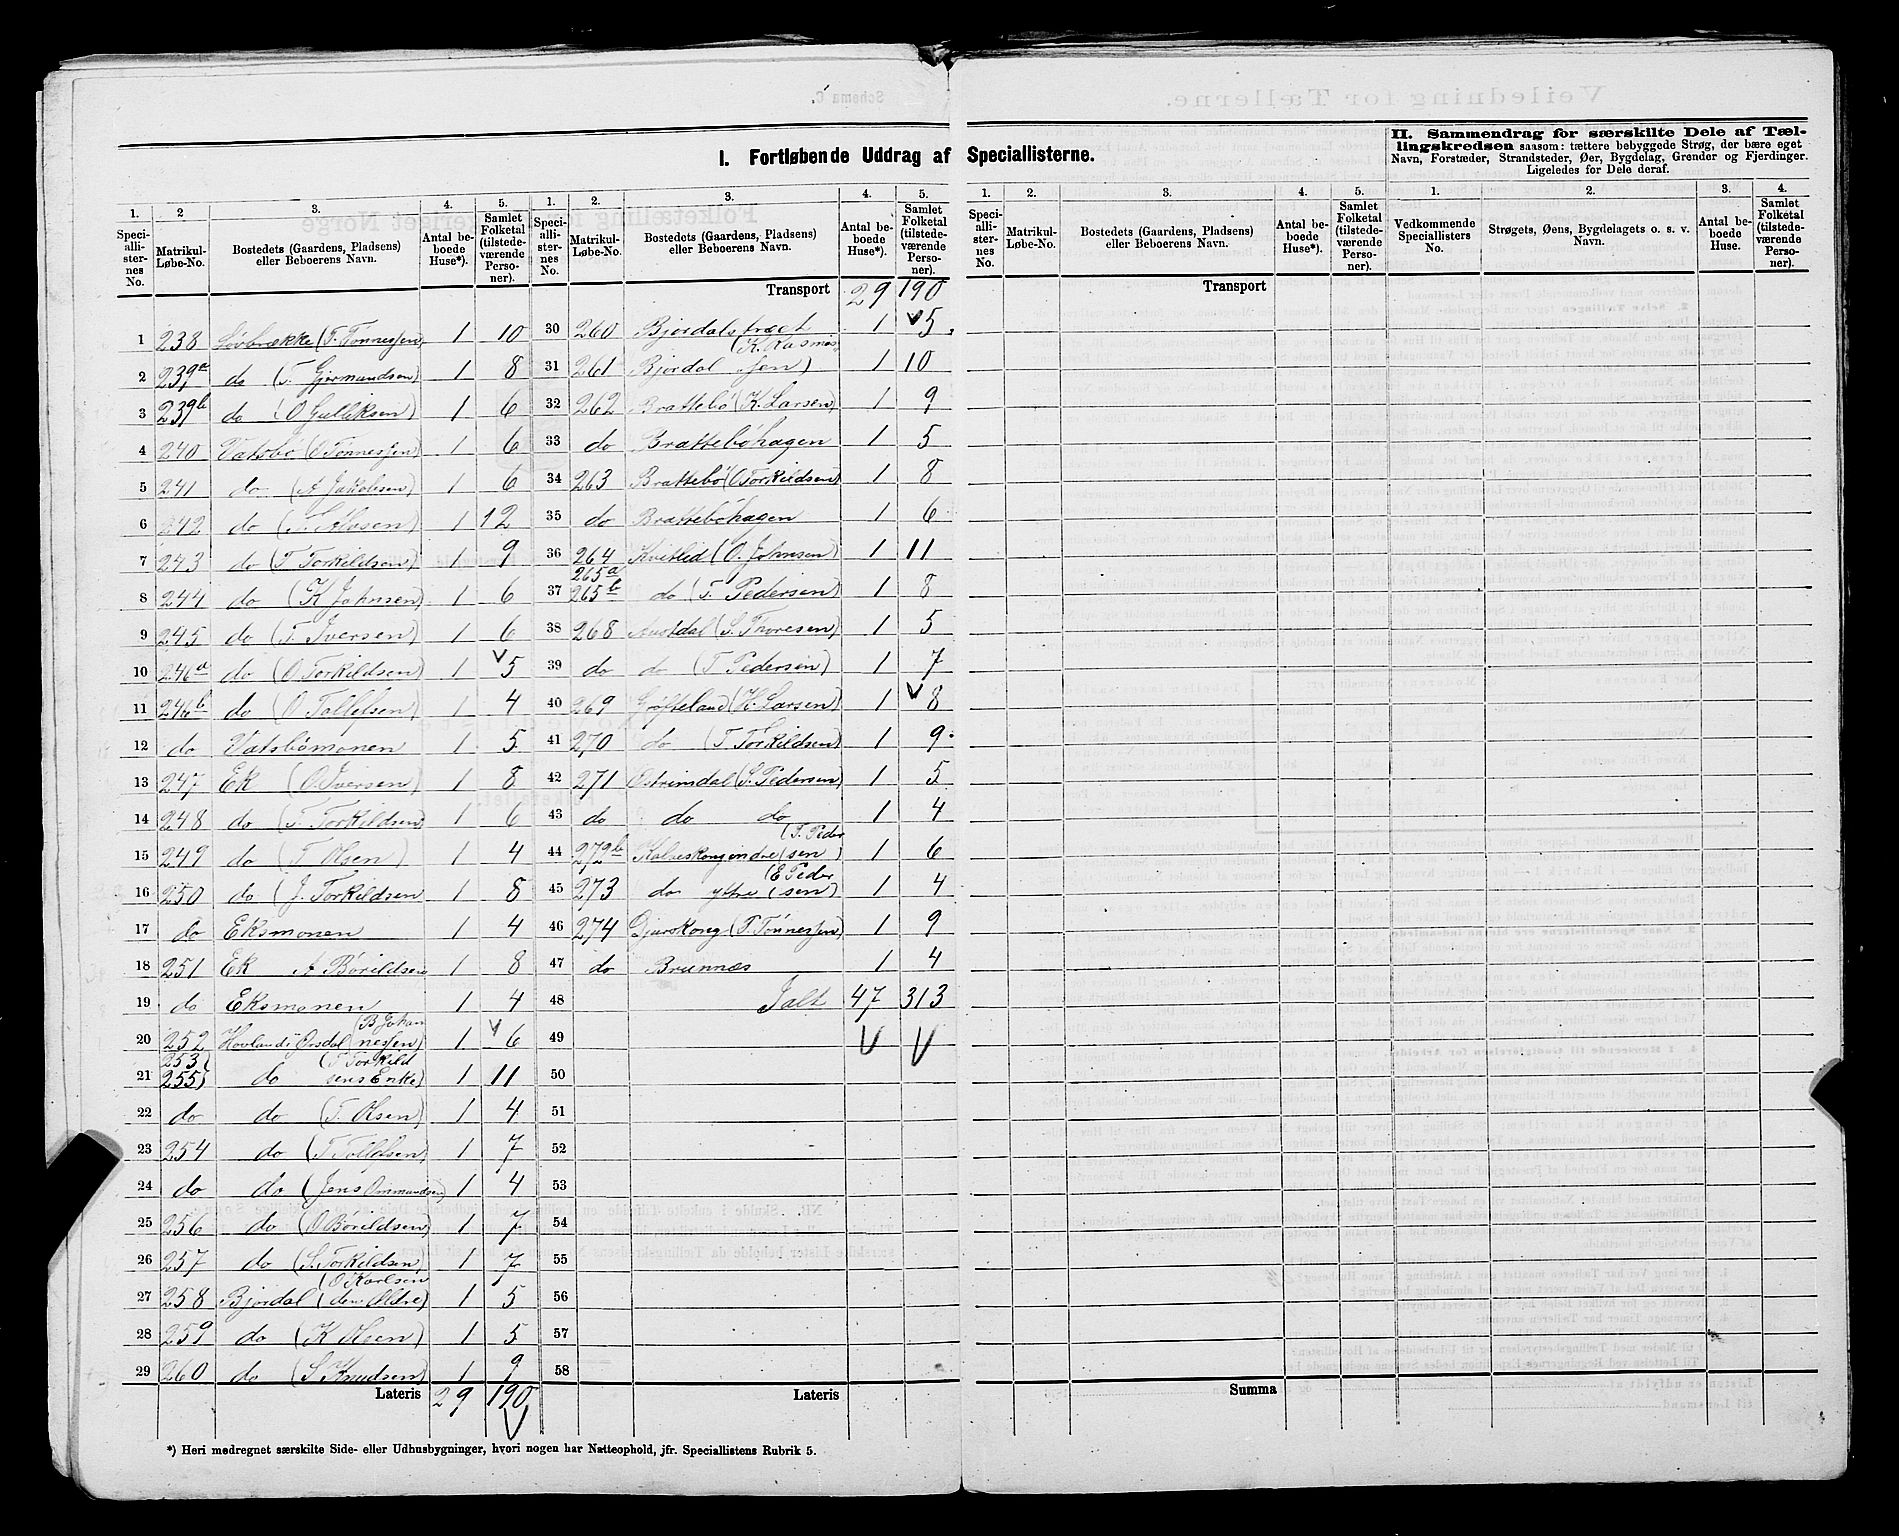 I. Fortløbende Uddrag af Speciallisterne.
II. Sammendrag for særskilte Dele af Tæl-
lingskredsen saasom: tættere bebyggede Strøg, der bære eget
Navn, Forstæder, Strandsteder, Øer, Bygdelag, Grender og Fjerdinger.
Ligeledes for Dele deraf.
1. 2 3. 4. 5.
Speciallisternes No. Matrikul-Løbe-No. Bostedets (Gaardens, Pladsens) eller Beboerens Navn. Antal beboede Huse*). Samlet Folketal (tilstedeværende Personer).
1 238 Lovbrække (T. Tønnessen) 1 10
2 239a do (T. Gjermundsen) 1 8
3 239b do (O Gulliksen) 1 6
4 240 Vatsbø (O Tønnessen) 1 6
5 241 do (A Jakobsen) 1 6
6 242 do 1 12
7 243 do (T Torkildsen) 1 9
8 244 do (K Johnsen) 1 6
9 245 do (T. Iversen) 1 6
10 246a do (O Torkildsen) 1 5
11 246b do (O Tollefsen) 1 4
12 do Vatsbømonen 1 5
13 247 Ek (O Iversen) 1 8
14 248 do (T. Torkildsen) 1 6
15 249 do (T Olsen) 1 4
16 250 do (J. Torkildsen 1 8
17 do Eksmonen 1 4
18 251 Ek A Børildsen 1 8
19 do Eksmonen 1 4
20 252 Hovland i Ørsdal (B Johannessen) 1 6
21 253 255 do (T Torkildsens Enke) 1 11
22 do do (T. Olsen) 1 4
23 254 do (T Tollefsen) 1 7
24 do do (Jens Ommundsen) 1 4
25 256 do (O Børildsen) 1 7
26 257 do (S. Torkildsen) 1 7
27 258 Bjordal (O Karlsen den Ældre) 1 5
28 259 do (K Olsen) 1 5
29 260 do (S Knudsen) 1 9
Lateris 29 190
1. 2. 3. 4. 5.
Speciallisternes No. Matrikul-Løbe-No. Bostedets (Gaardens, Pladsens) eller Beboerens Navn. Antal beboede Huse*). Samlet Folketal (tilstedeværende Personer).
Transport 29 190
30 260 Bjordalstræet 1 5
31 261 Bjordal (K. Rasmussen) 1 10
32 262 Brattebø (K. Larsen) 1 9
33 do Brattebøhagen 1 5
34 263 Brattebø (O Torkildsen) 1 8
35 do Brattebøhagen 1 6
36 264 Kvitlid (O. Johnsen) 1 11
37 265a 265b do (T. Pedersen) 1 8
38 268 Austdal (S. Thoresen) 1 5
39 do do (T Pedersen) 1 7
40 269 Grøfteland (H. Larsen) 1 8
41 270 do (T Torkildsen) 1 9
42 271 Ostrimdal (S. Pedersen) 1 5
43 do do do 1 4
44 272b (T. Pedersen) 1 6
45 273 do ytre (E Pedersen) 1 4
46 274 Djurskong (T. Tønnessen) 1 9
47 do Brunnæs 1 4
48 Ialt 47 313
49
50
51
52
53
54
55
56
57
58
Lateris
1. 2. 3. 4. 5.
Speciallisternes No. Matrikul-Løbe-No. Bostedets (Gaardens, Pladsens) eller Beboerens Navn. Antal beboede Huse*). Samlet Folketal (tilstedeværende Personer).
Transport
Summa
1. 2. 3. 4.
Vedkommende Speciallisters No. Strøgets, Øens, Bygdelagets o. s. v. Navn. Antal beboede Huse. Samlet Folketal (tilstedeværende Personer).
*) Heri medregnet særskilte Side- eller Udhusbygninger, hvori nogen har Natteophold, jfr. Speciallistens Rubrik 5.